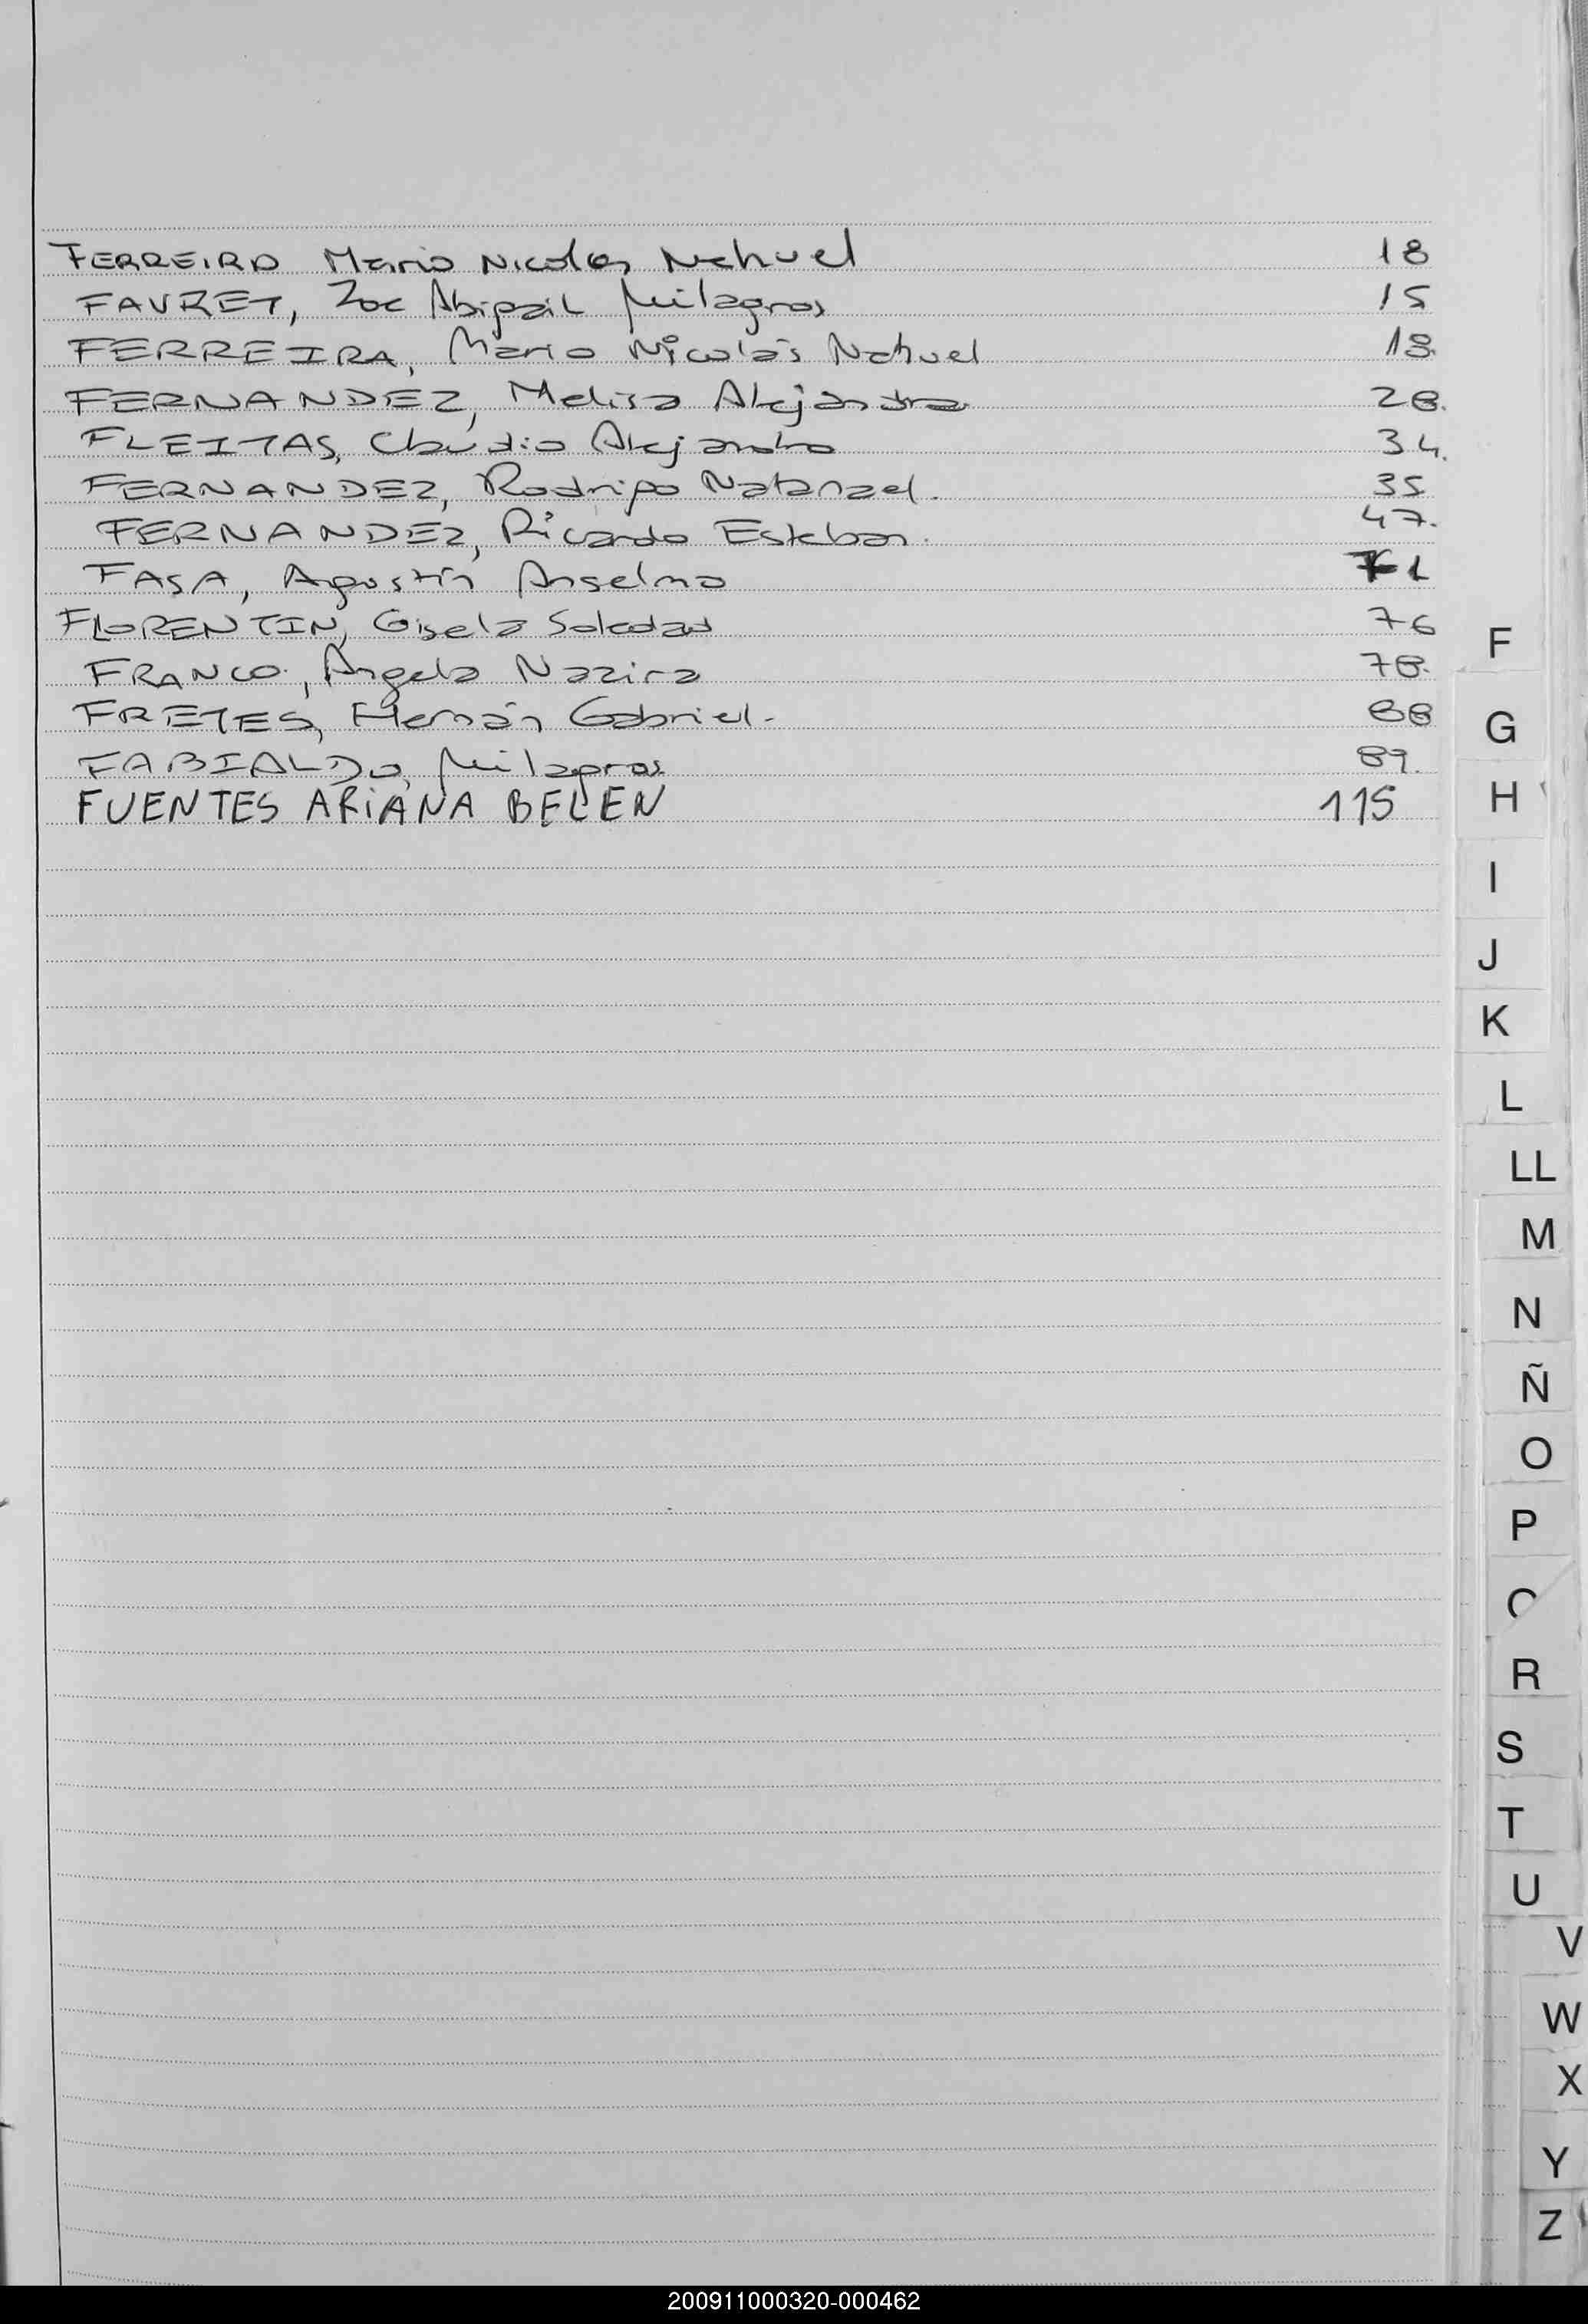 FERREIRO Mario Nicolas Nahuel 18
FAVRET, Zoe Abigail Milagros 15
FERREIRA, Mario Nicolás Nahuel 18.
FERNANDEZ, Melisa Alejandra 28.
FLEITAS, Claudio Alejandro 34.
FERNANDEZ, Rodrigo Natanael. 35
FERNANDEZ, Ricardo Esteban. 47.
FASA, Agustín Anselmo 71
FLORENTIN, Gisela Soledad 76
FRANCO, Angela Nazira 78.
FRETES, Hernán Gabriel. 88
FABIALDO, Milagros 89.
FUENTES ARIANA BELEN 115
F
G
H
I
J
K
L
LL
M
N
Ñ
O
P
R
S
T
U
V
W
X
Y
Z
200911000320-000462